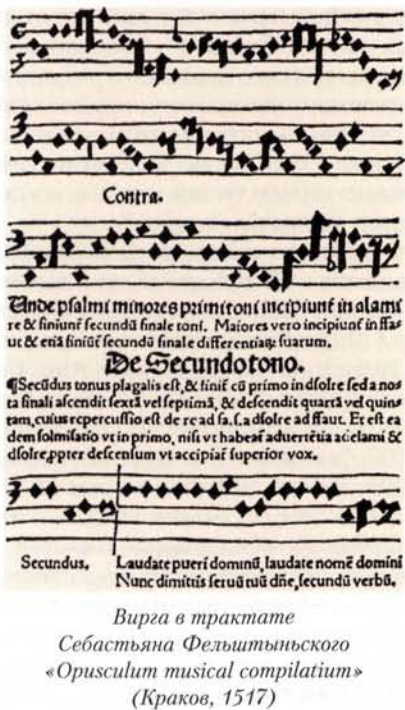 Contra.
Unde psalmi minores primi toni incipiunt in alami
re & finiunt secundũ finale toni. Maiores vero incipiunt in ffa⸗
ut & etiã finiũt secundũ finale differentiaꝝ suarum.
De Secundo tono.
¶Secũdus tonus plagalis est, & finit cũ primo in dsolre sed a no⸗
ta finali ascendit sextã vel septimã, & descendit quartã vel quin⸗
tam, cuius repercussio est de re ad fa. s. a dsolre ad ffaut. Et est ea
dem solmisatio vt in primo, nisi vt habeaꞇ̃ aduertẽtia ad elami &
dsolre, ꝓpter descensum vt accipiaꞇ̃ superior vox.
Secundus. Laudate pueri dominũ, laudate nomẽ domini
Nunc dimittis seruũ tuũ dñe, secundũ verbũ.
Вирга в трактате
Себастьяна Фельштыньского
«Opusculum musical compilatium»
(Краков, 1517)